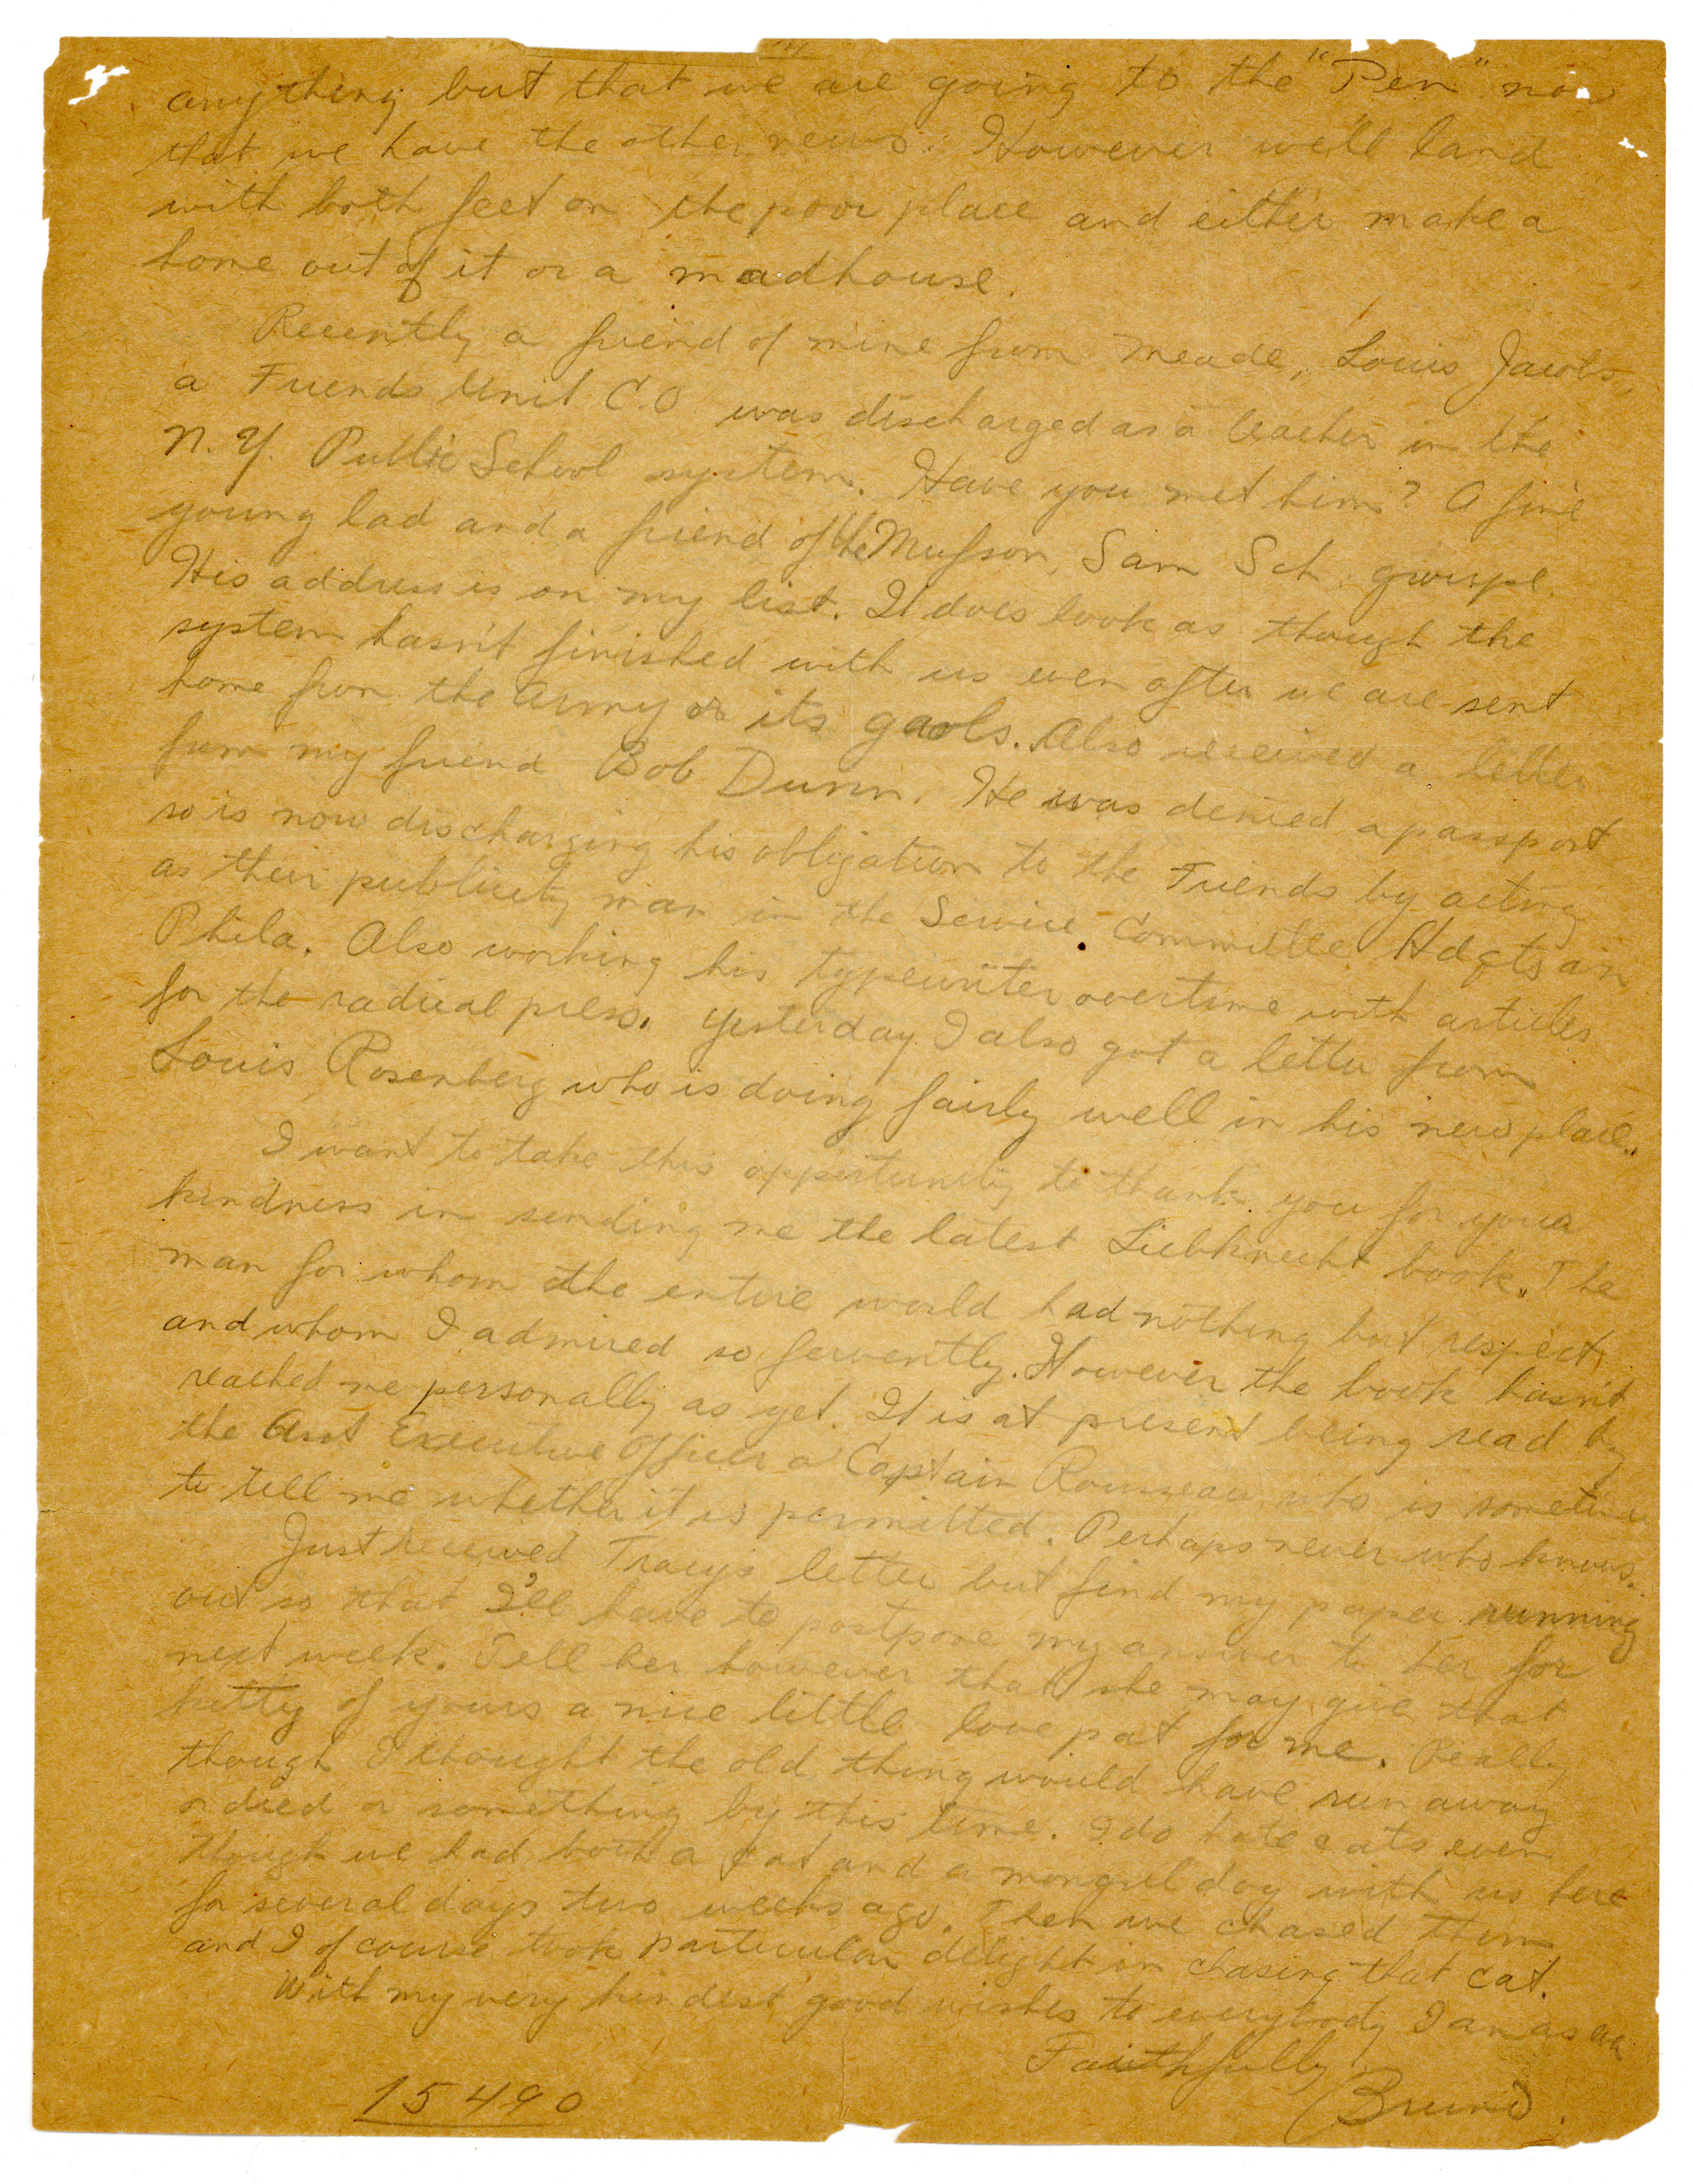 anything but that we are going to the "Pen" now
that we have the other news. However we'll land
with both feet on the poor place and either make a
home out of it or a madhouse.
Recently a friend of mine from Meade, Louis Jacobs,
a Friends Unit C.O. was discharged as a teacher in the
N.Y. Public School system. Have you met him? A fine
young lad and a friend of the Mufson, Sam Sch group.
His address is on my list. It does look as though the
system hasn't finished with us even after we are sent
home from the army or its gaols. Also received a letter
from my friend Bob Dunn. He was denied a passport
so is now discharging his obligation to the Friends by acting
as their publicity man in the Service Committee Hdqts in
Phila. Also working his typewriter overtime with articles
for the radical press. Yesterday I also got a letter from
Louis Rosenberg who is doing fairly well in his new place.
I want to take this opportunity to thank you for your
kindness in sending me the latest Liebknecht book. The
man for whom the entire world had nothing but respect,
and whom I admired so fervently. However the book hasn't
reached me personally as yet. It is at present being read by
the Asst Executive Officer a Captain Rousseau who is sometime
to tell me whether it is permitted. Perhaps never who knows.
Just received Tracy's letter but find my paper running
out so that I'll have to postpone my answer to her for
next week. Tell her however that she may give that
kitty of yours a nice little love pat for me. Really
though I thought the old thing would have run away
or died or something by this time. I do hate cats even
though we had both a cat and a mongrel dog with us here
for several days two weeks ago. Then we chased them
and I of course took particular delight in chasing that cat.
With my very kindest good wishes to everybody I am as ever
Faithfully
Bruno.
15490